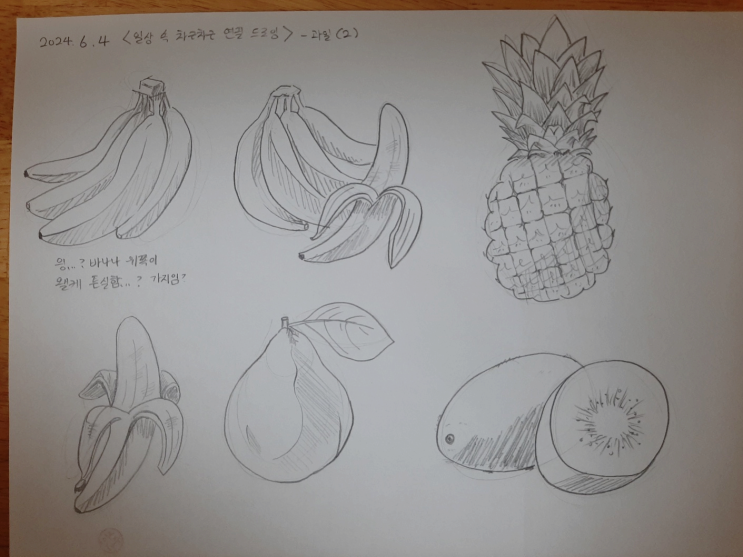 2024. 6. 4 <일상 속 차근차근 연필 드로잉> - 과일 (2)
읭...? 바나나 뒤쪽이
왤케 튼실함...? 가지임?